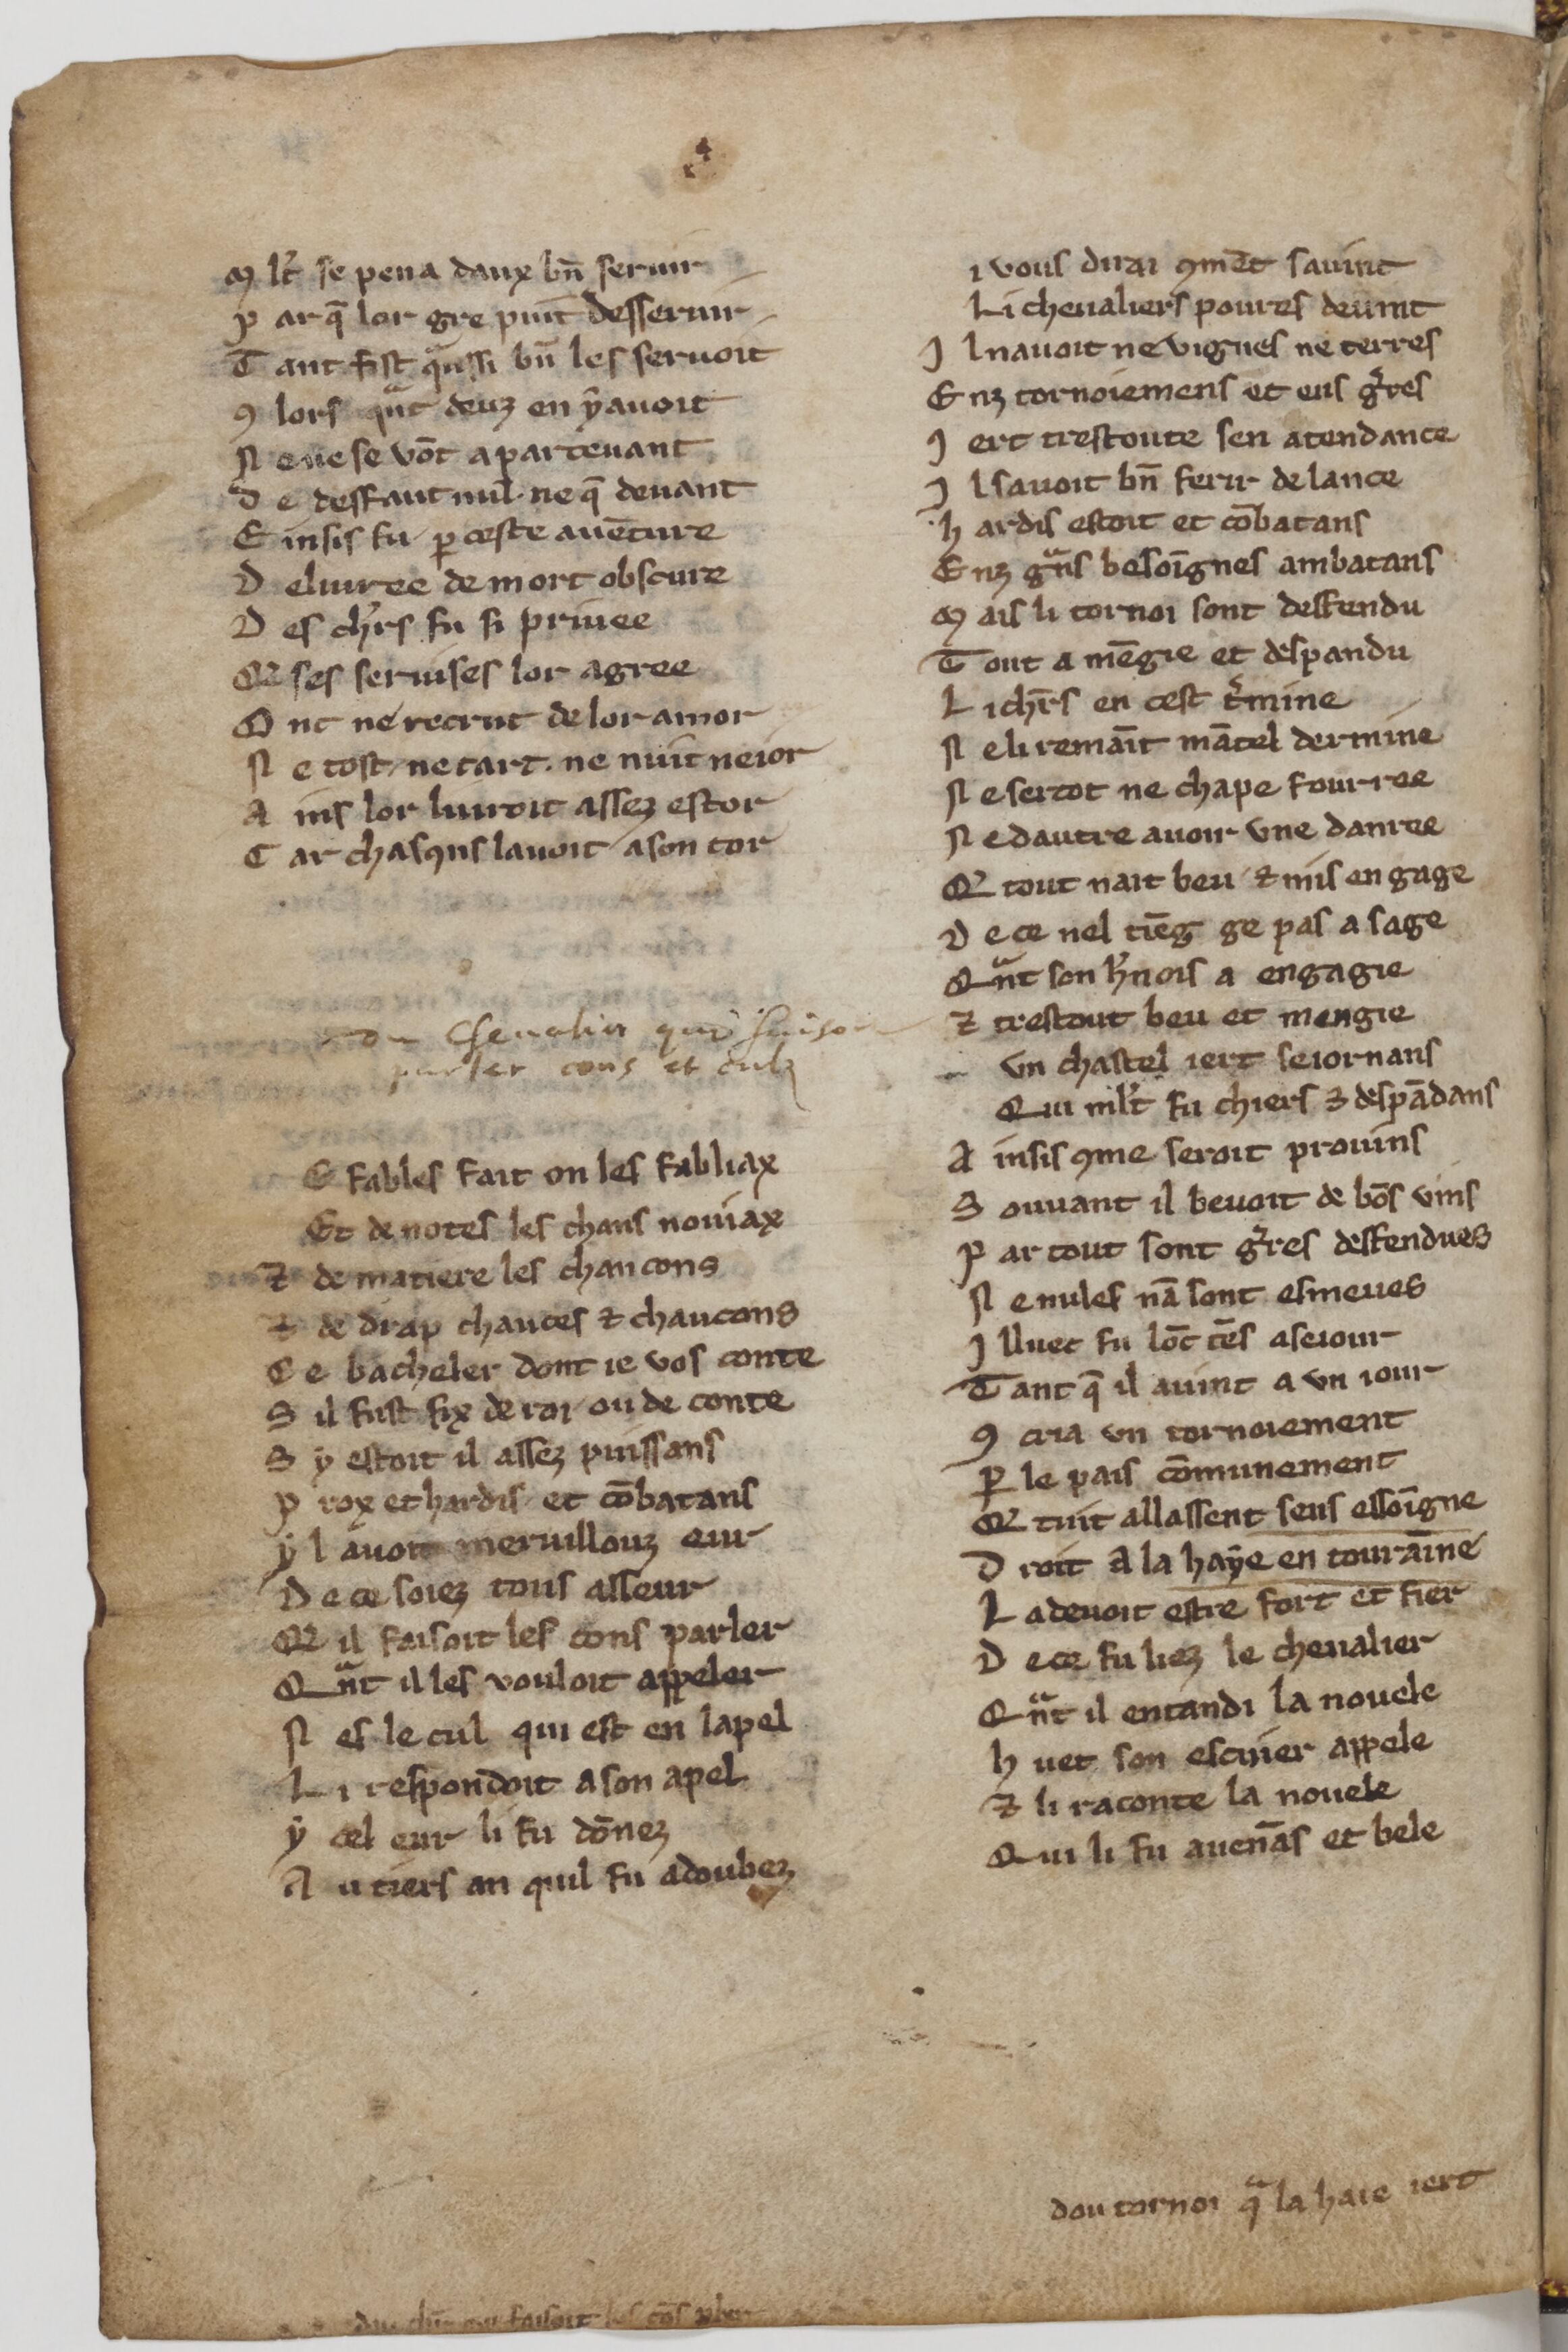 M lt̾ se pena daux bn̄ seruir
P ar q̄ lor gre puit desseruir
T ant fist qͣussi bn̄ les seruoit
ꝯ lors qͣnt deuz en ẏ auoit
N e ne se vōt apartenant
D e deffaut nul. ne q̄ deuant
E insis fu ꝑ ceste auēture
D eliuree de mort obscure
D es ch'rs fu si priuee
Q̄ ses seruises lor agree
O nt ne recrut de lor amor
N e tost. ne tart. ne nuit ne ior
A ins lor liuroit assez estor
C ar chasꝯns lauoit a son tor
du Cheualier qui faiso
parler cons et culz
E fables fait on les fabliax
Et de notes les chans nouiax
⁊ de matiere les chancons
⁊ de drap chauces ⁊ chaucons
C e bacheler dont ie vos conte
S il fust fix de roi ou de conte
S y estoit il assez puissans
P rox et hardis et cōbatans
ẏ l auoit meruillouz eur
D e ce soiez tous asseur
Q̄ il faisoit les cons parler
Qͣnt il les vouloit appeler
N es le cul qui est en lapel
L i respondoit a son apel
ẏ cel eur li fu dōnez
A u tiers an quil fu adoubez
i vous dirai ꝯmēt sauint
Li cheualiers poures deuint
I l nauoit ne vignes ne terres
E nz tornoiemens et ens g̾res
I ert trestoute sen atendance
I l sauoit bn̄ ferir de lance
h ardis estoit et cōbatans
E nz gͣns besoīgnes ambatans
M ais li tornoi sont deffendu
T out a mēgie et despandu
L i ch'rs en cest t̾mine
N e li remaīt mātel dermine
N e sercot ne chape fourree
N e dautre auoir vne danree
Q̄ tout nait beu ⁊ mis en gage
D e ce nel tiēg ge pas a sage
Qͣnt son h'nois a engagie
⁊ trestout beu et mengie
un chastel iert seiornans
Qui ml't fu chiers ⁊ despādans
A insis ꝯme seroit prouins
S ouuant il beuoit de bōs vins
P ar tout sont g̾res deffendues
N e nules nā sont esmeues
I lluec fu lōc tēs a seiour
T ant q̄ il auint a vn iour
ꝯ cria vn tornoiement
ꝑ le pais cōmunement
Q̄ tuit allassent sens essoīgne
D roit a la haẏe en touraīne
L a deuoit estre fort et fier
D e ce fu liez le cheualier
Qͣnt il entandi la nouele
h uet son escuier appele
⁊ li raconte la nouele
Q ui li fu auenās et bele
dou tornoi qͣ la haie iert